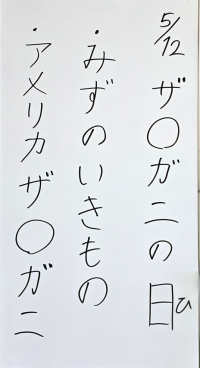 5/12 ザ○ガニの日ひ
・みずのいきもの
・アメリカザ○ガニ